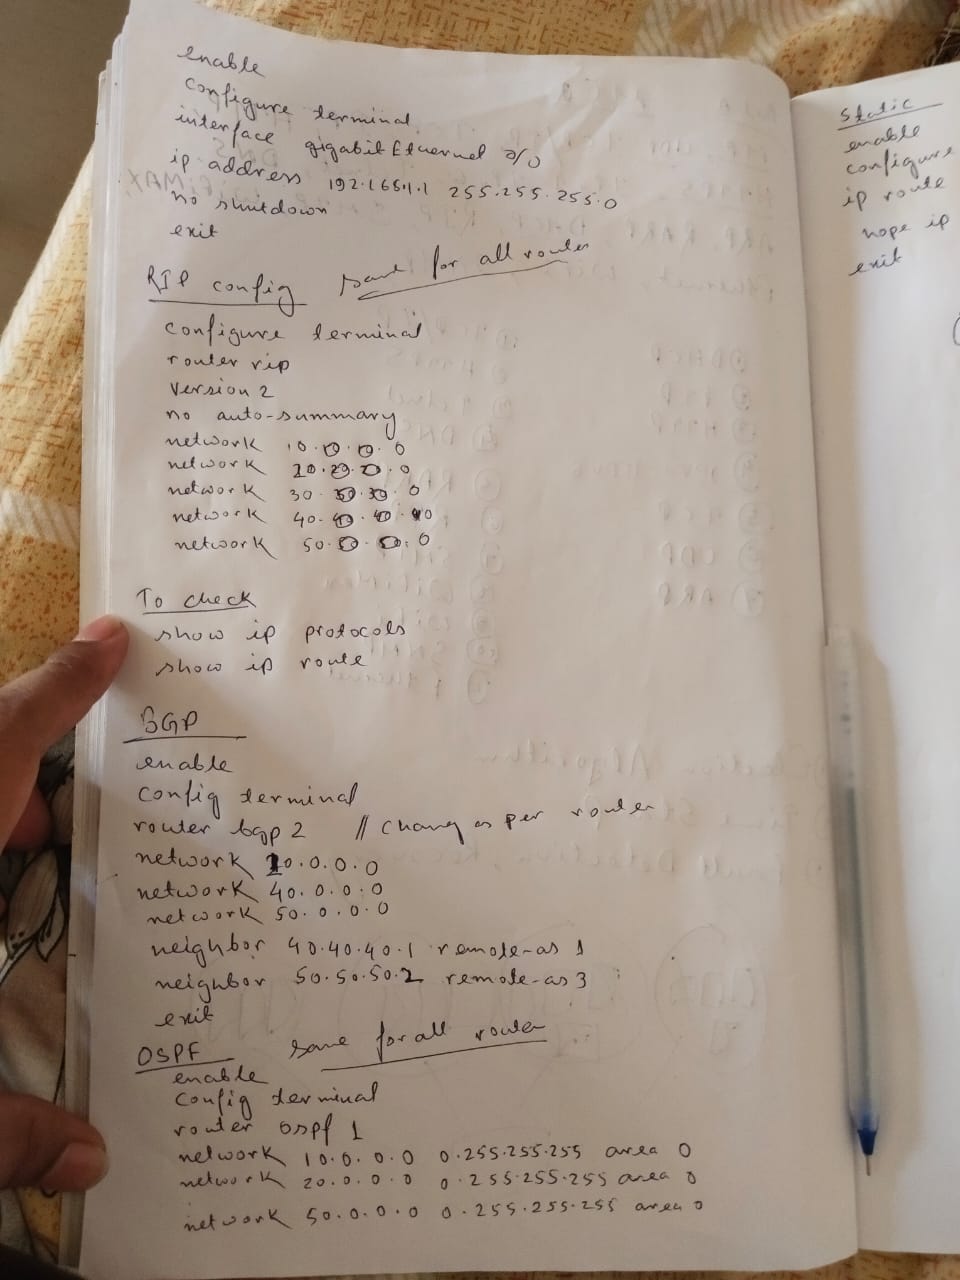 enable
configure terminal
interface gigabitEthernet 0/0
ip address 192.168.1.1 255.255.255.0
no shutdown
exit
RIP config same for all router
configure terminal
router rip
version 2
no auto-summary
network 10.0.0.0
network 20.20.0.0
network 30. . .0
network 40. . .0
network 50.0.0.0
To check
show ip protocols
show ip route
BGP
enable
config terminal
router bgp 2 // Chang as per router
network 20.0.0.0
network 40.0.0.0
network 50.0.0.0
neighbor 40.40.40.1 remote-as 1
neighbor 50.50.50.2 remote-as 3
exit
OSPF same for all router
enable
config terminal
router ospf 1
network 10.0.0.0 0.255.255.255 area 0
network 20.0.0.0 0.255.255.255 area 0
network 50.0.0.0 0.255.255.255 area 0
Static
enable
configure
ip route
hope ip
exit